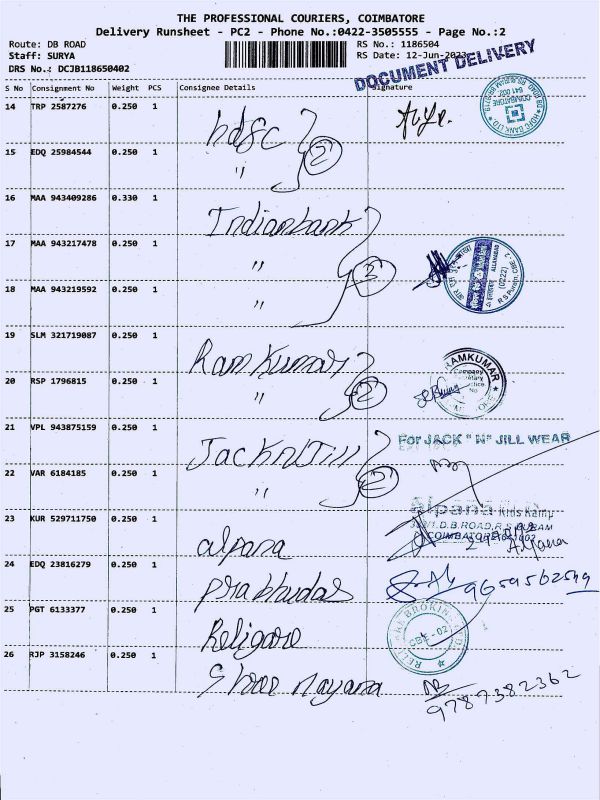 THE PROFESSIONAL COURIERS, COIMBATORE
Delivery Runsheet - PC2 - Phone No.:0422-3505555 - Page No.:2
Route: DB ROAD RS No.: 1186504
Staff: SURYA RS Date: 12-Jun-2023
DRS No.: DCJB118650402 DOCUMENT DELIVERY
S No Consignment No Weight PCS Consignee Details Signature
14 TRP 2587276 0.250 1 hdfc
HDFC BANK LTD COIMBATORE 641 002
15 EDQ 25984544 0.250 1 " 2
16 MAA 943409286 0.330 1 Indianbank
17 MAA 943217478 0.250 1 " 3
ALLAHABAD (0222) R S Puram, CBE
18 MAA 943219592 0.250 1 "
19 SLM 321719087 0.250 1 Ram Kumar
RAMKUMAR Company Secretary
20 RSP 1796815 0.250 1 " 2
21 VPL 943875159 0.250 1 Jack n Jill
For JACK "N" JILL WEAR
22 VAR 6184185 0.250 1 " 2
Alpana Kids Kamp
D.B.ROAD,R.S.PURAM
COIMBATORE-641002
23 KUR 529711750 0.250 1 alpana Alpana
24 EDQ 23816279 0.250 1 Prabhudas 9659562509
25 PGT 6133377 0.250 1 Religare
RELIGARE BROKING CBE-02
26 RJP 3158246 0.250 1 Shree nayana
9787382362